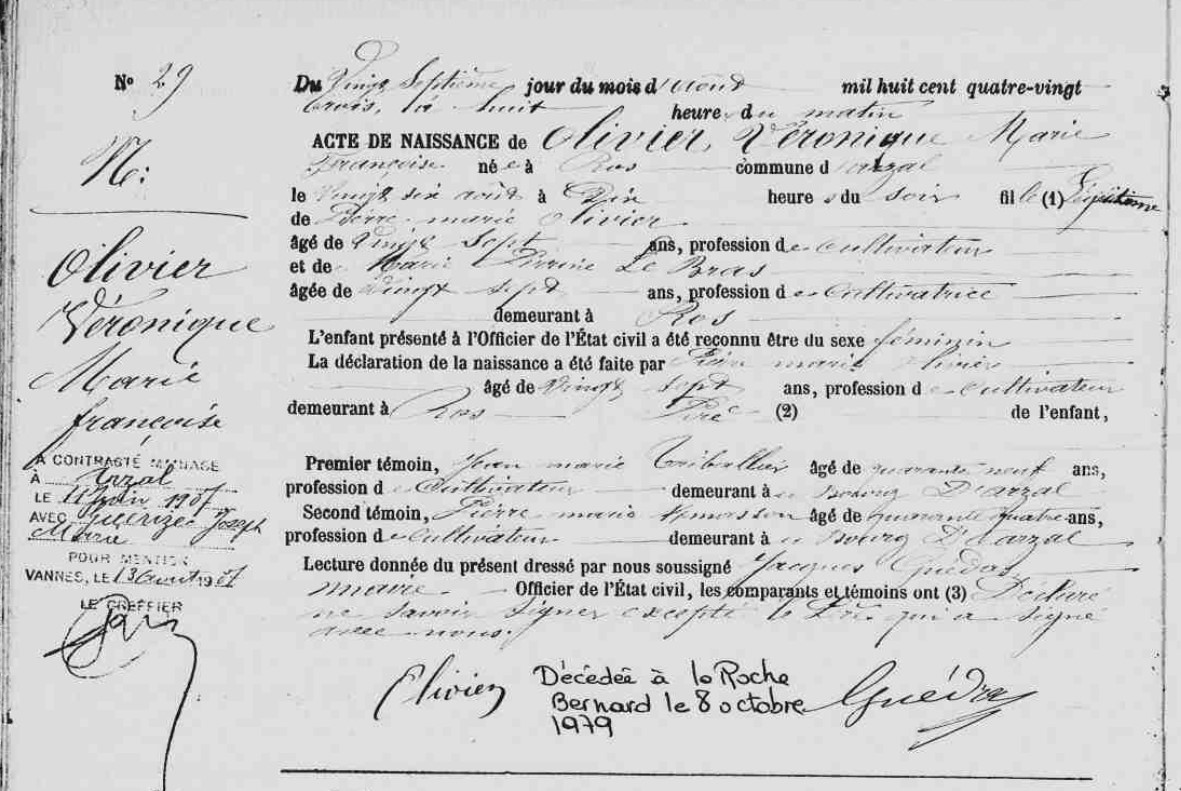 Nº 29
N:
Olivier
Véronique
Marie
françoise
A CONTRACTÉ MARIAGE
À Arzal
LE 1907
AVEC Guerizec Joseph
Marie
POUR MENTION
VANNES, LE 13
LE GREFFIER
Du Vingt Septième jour du mois d'août mil huit cent quatre-vingt
trois, à huit heure du matin
ACTE DE NAISSANCE de Olivier, Véronique Marie
Françoise née à Ros commune d'arzal
le vingt six août à Dix heures du soir fille (1) légitime
de Pierre marie Olivier
âgé de Vingt Sept ans, profession de Cultivateur
et de Marie Perrine Le Bras
âgée de Vingt sept ans, profession de Cultivatrice
demeurant à Ros
L'enfant présenté à l'Officier de l'État civil a été reconnu être du sexe féminin
La déclaration de la naissance a été faite par Pierre marie Olivier
âgé de Vingt sept ans, profession de Cultivateur
demeurant à Ros Père (2) de l'enfant,
Premier témoin, Jean marie Triballier âgé de quarante neuf ans,
profession de Cultivateur demeurant à Bourg D'arzal
Second témoin, Pierre marie âgé de quarante quatre ans,
profession de Cultivateur demeurant à Bourg D'arzal
Lecture donnée du présent dressé par nous soussigné Jacques Guédas
maire Officier de l'État civil, les comparants et témoins ont (3) Déclaré
ne savoir signer excepté le Père qui a signé
avec nous.
Olivier
Décédée à la Roche
Bernard le 8 octobre
1979
Guédas